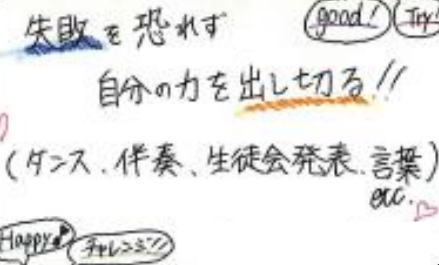 失敗を恐れず
good! Try!
自分の力を出し切る!!
(ダンス、伴奏、生徒会発表、言葉)
etc.
Happy♪ チャレンジ!!